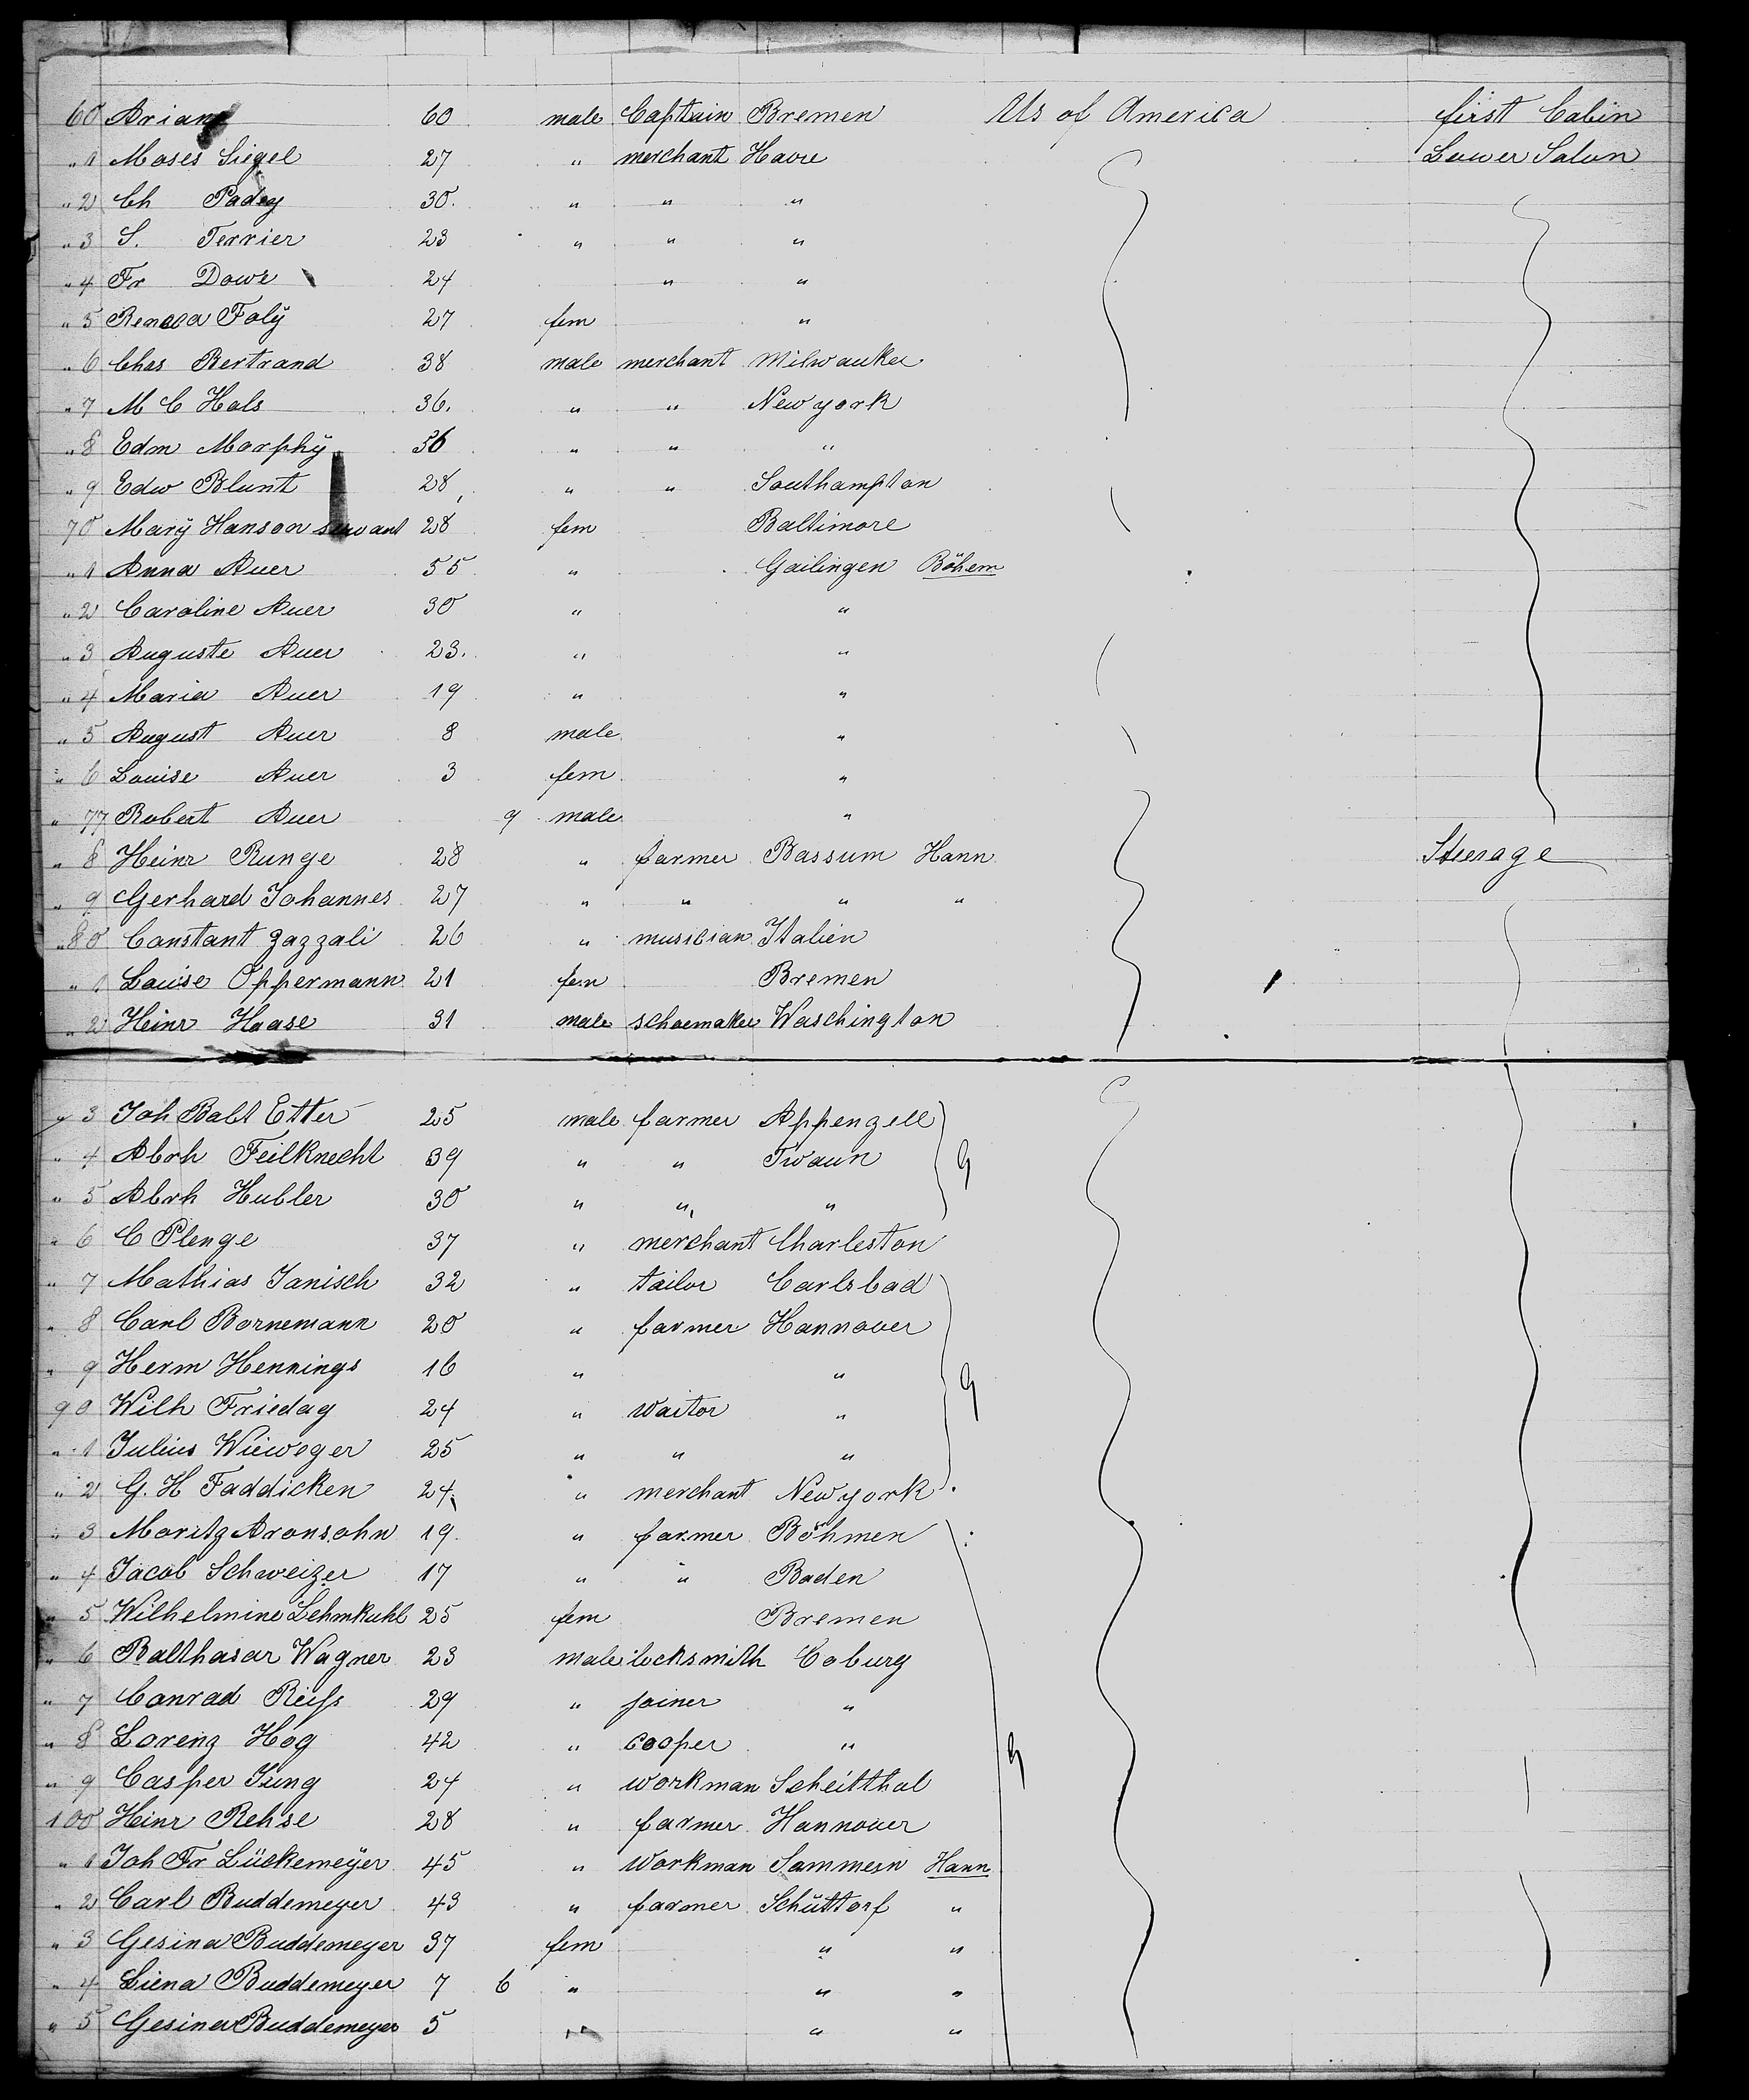 60 Arians 60 male Captain Bremen Us of America first Cabin
" 1 Moses Siegel 27 " merchant Havre Lower Salon
" 2 Ch Padey 30. " " "
" 3 S. Terrier 23 " " "
" 4 Fr Dowe 24 " "
" 5 Foly 27 fem "
" 6 Chas Bertrand 38 male merchant Milwaukee
" 7 M C Hals 36. " " New york
" 8 Edm Morphy 36 " " "
" 9 Edw Blunt 28 " " Southampton
70 Mary Hanson servant 28 fem Baltimore
" 1 Anna Auer 55 " Gailingen Böhem
" 2 Caroline Auer 30 " "
" 3 Auguste Auer 23. " "
" 4 Maria Auer 19 " "
" 5 August Auer 8 male "
" 6 Louise Auer 3 fem "
" 77 Robert Auer 9 male "
" 8 Heinr Runge 28 " farmer Bassum Hann Steerage
" 9 Gerhard Johannes 27 " " " "
" 80 Constant Zazzali 26 " musician Italien
" 1 Louise Oppermann 21 fem Bremen
" 2 Heinr Haase 31 male schoemaker Waschington
" 3 Joh Balt Etter 25 male farmer Appenzell
" 4 Abrh Feilknecht 39 " " Twaun G
" 5 Abrh Hubler 30 " " "
" 6 C Plenge 37 " merchant Charleston
" 7 Mathias Janisch 32 " tailor Carlsbad
" 8 Carl Bornemann 20 " farmer Hannover
" 9 Herm Hennings 16 " " G
90 Wilh Friedag 24 " waitor "
" 1 Julius Wieweger 25 " " "
" 2 G. H Faddicken 24 " merchant New york
" 3 Moritz Aronsohn 19 " farmer Böhmen
" 4 Jacob Schweizer 17 " " Baden
" 5 Wilhelmine Lehmkuhl 25 fem Bremen
" 6 Balthasar Wagner 23 male locksmith Coburg
" 7 Conrad Reiſs 29 " joiner "
" 8 Lorenz Hog 42 " cooper " G
" 9 Casper Jung 24 " workman Scheitthal
100 Heinr Rehse 28 " farmer Hannover
" 1 Joh Fr Lückemeyer 45 " workman Sammern Hann
" 2 Carl Buddemeyer 43 " farmer Schüttorf "
" 3 Gesina Buddemeyer 37 fem " "
" 4 Liena Buddemeyer 7 6 " " "
" 5 Gesina Buddemeyer 5 " " "